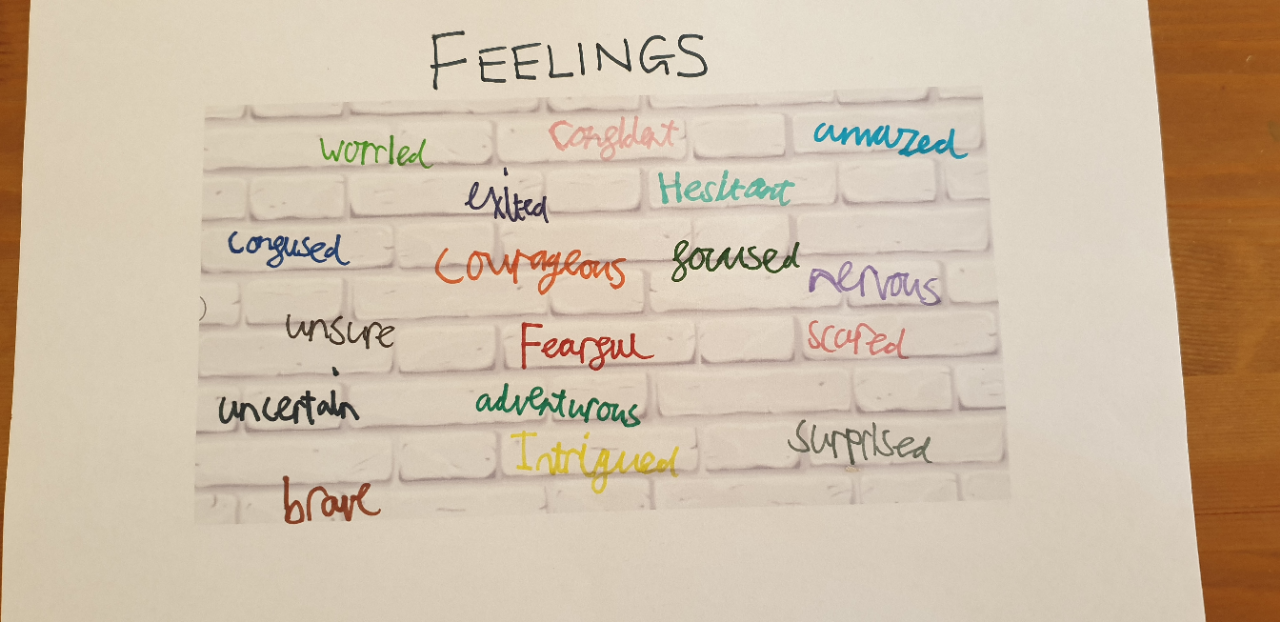 FEELINGS
worried confident amazed
exited Hesitant
confused courageous focused nervous
unsure Fearful scared
uncertain adventurous
Intrigued surprised
brave